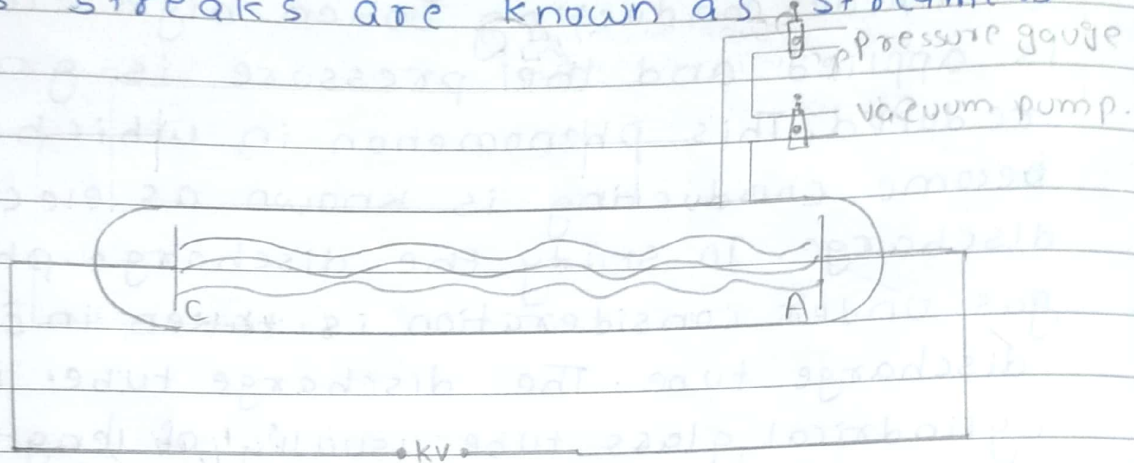 streaks are known as
pressure gauge
vacuum pump.
C
A
KV